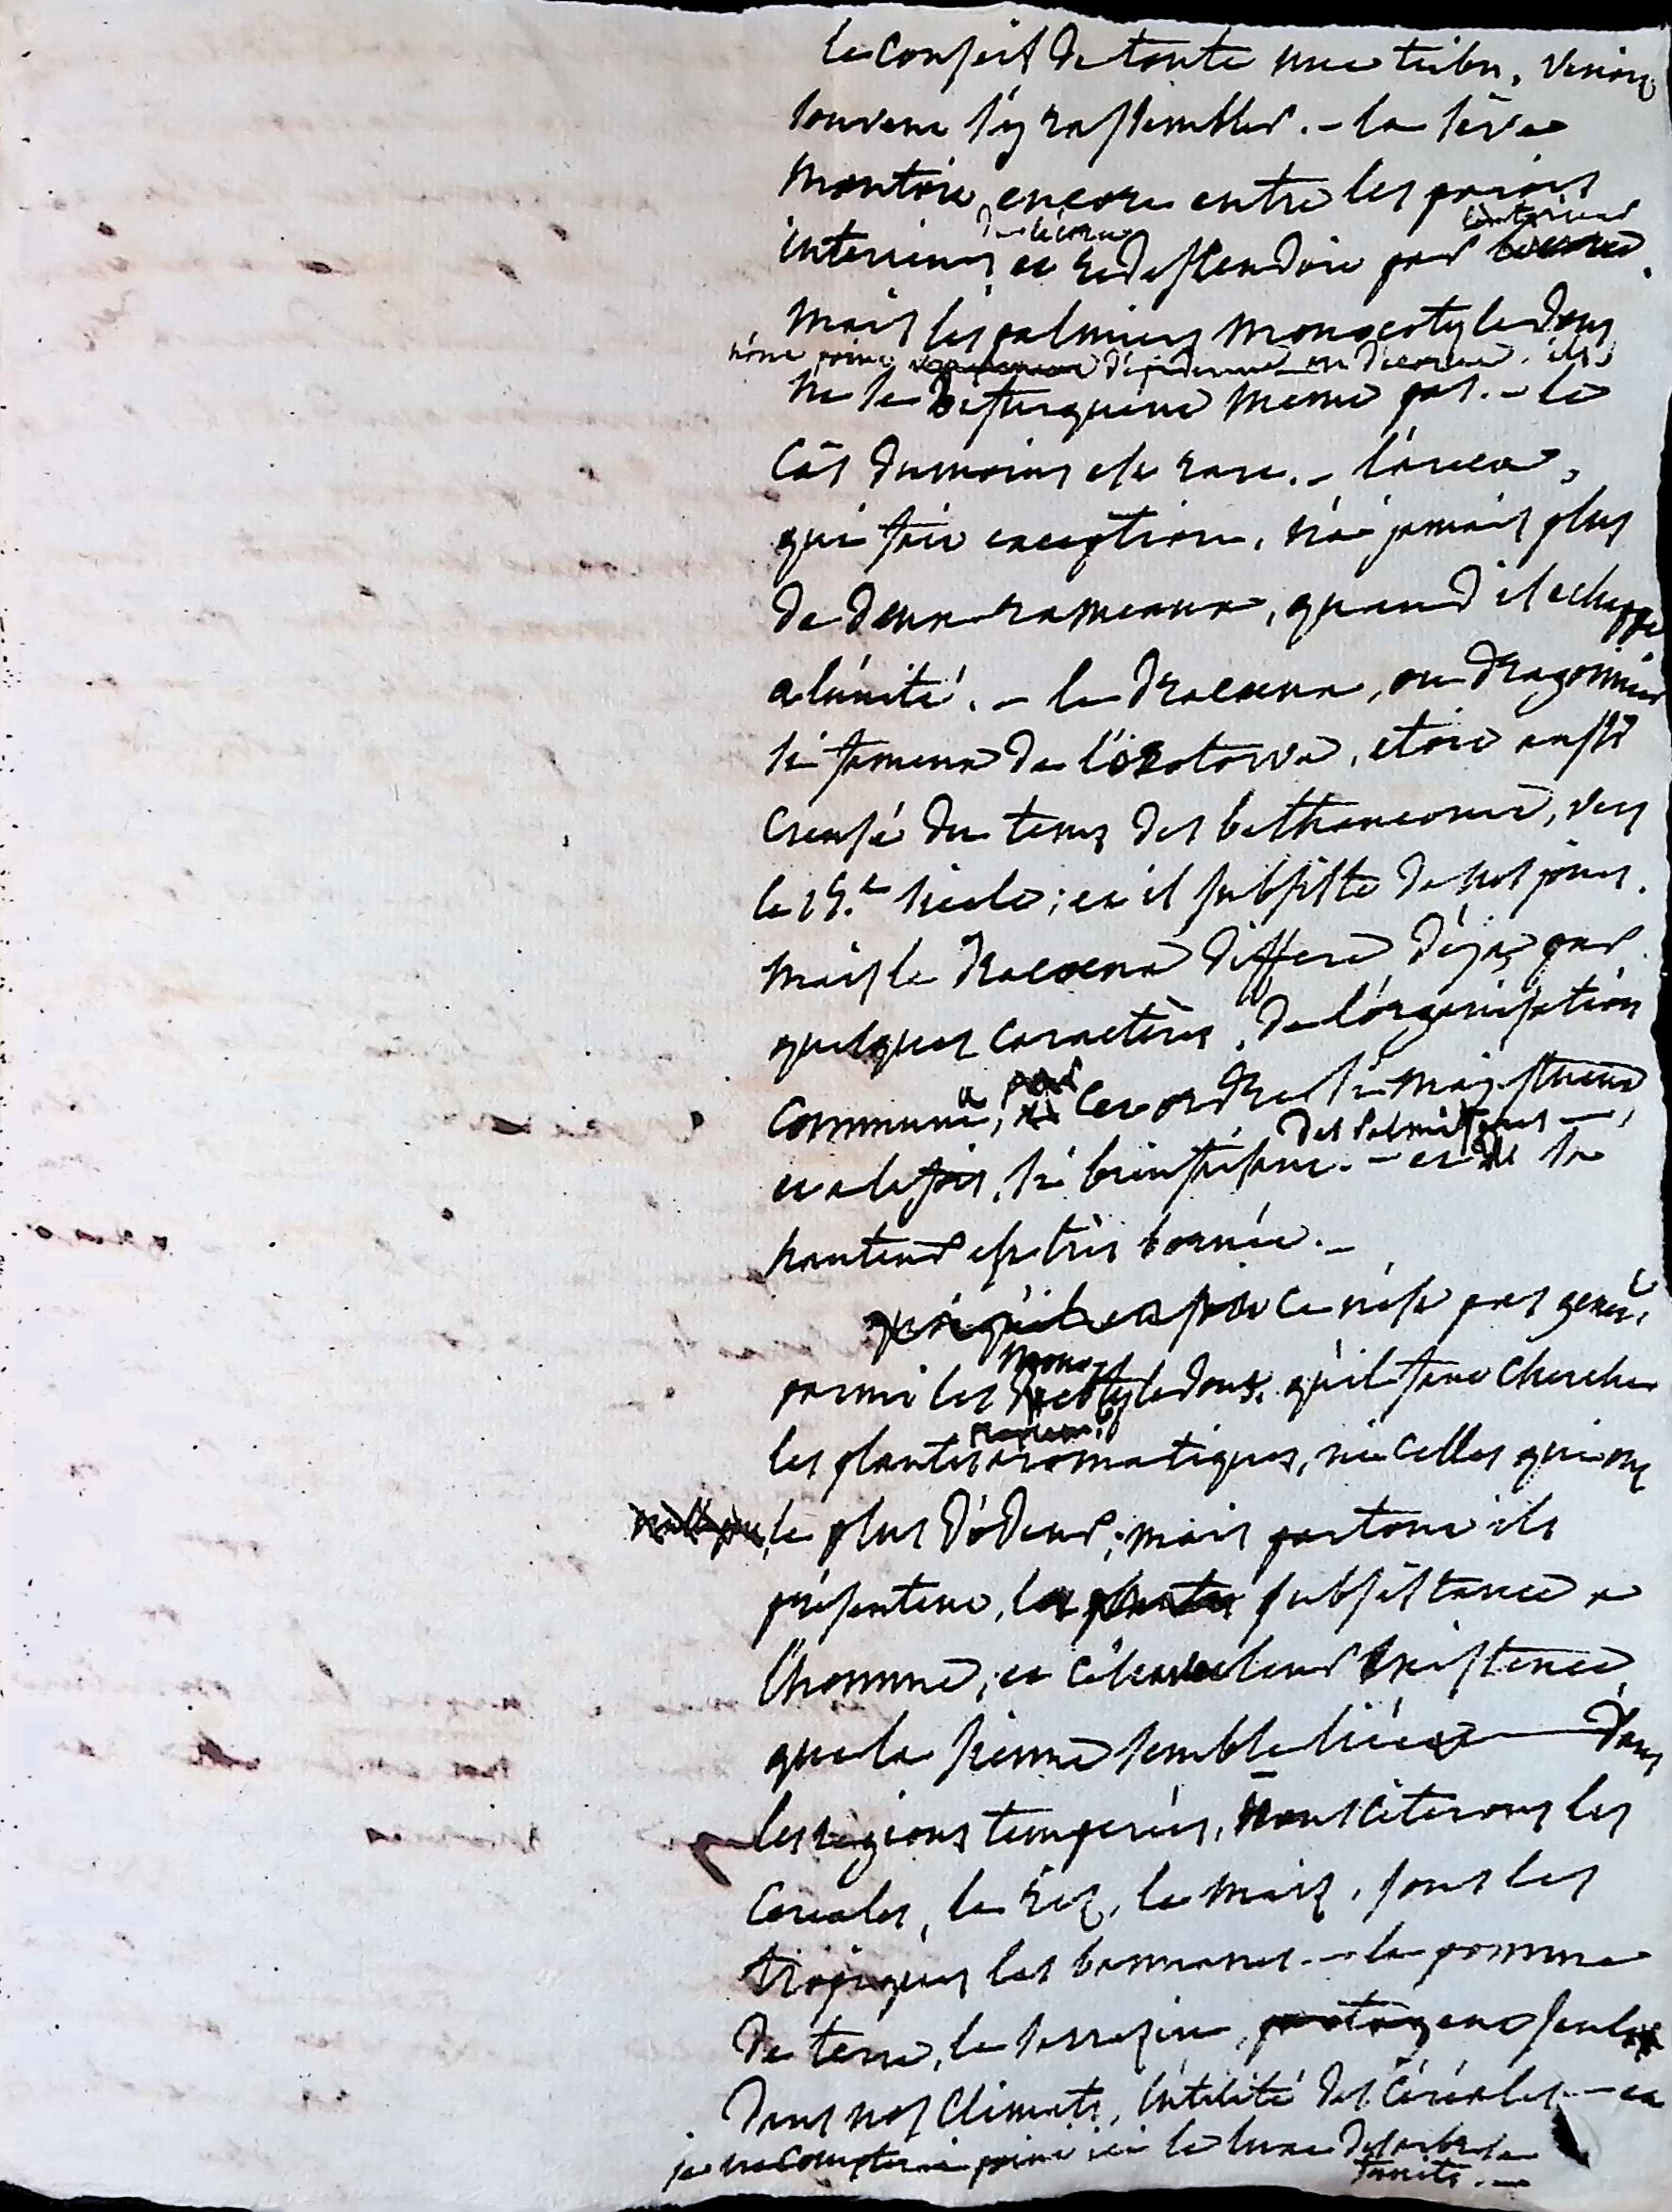 le conseil de toute une tribu, venoit
souvent s'y rassembler. – la sève
montoit encore entre les parois
de l'écorce l'exterieur
interieures et redescendoit par
mais les palmiers monocotyledons
n'ont point d'épiderme ou d'écorce. ils
ne se bifurquent meme pas. – le
cas du moins est rare. –
qui fait exception, n'a jamais plus
de deux rameaux, quand il echappe
a l'unité. – le dracaena, ou dragonnier
si fameux de l'orotava, etoit aussi
creusé du tems des bethancourt, vers
le 15.e siecle; et il subsiste de nos jours.
mais le dracaena differe déja par
quelques caractères, de l'organisation
commune a cet ordre si majestueux
des palmiers
et a la fois, si bienfaisant. – et sa
hauteur est très bornée. –
ce n'est pas
mono
parmi les cotyledons, qu'il faut chercher
les plantes aromatiques, ni celles qui ont
le plus d'odeur; mais partout ils
présentent, la subsistance a
l'homme, et c'est a leur existence
que la sienne semble liée dans
les régions temperées, nous citerons les
cereales, le riz, le maïz, sous les
tropiques les bannanes. – la pomme
de terre, le sarrasin, partagent seuls
dans nos climats, l'utilité des céréales. – et
je ne compterai point ici le luxe des arbres a
fruits. –